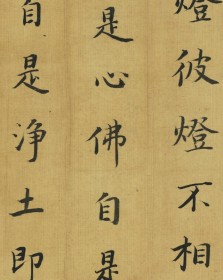 燈彼燈不相
是心佛自是
自是淨土即